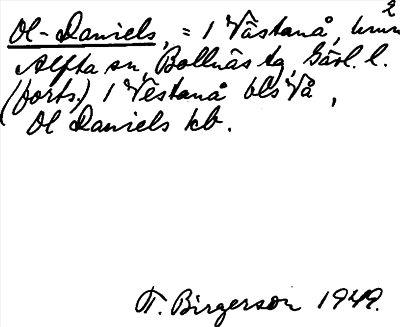 Ol-Daniels, = 1 Västanå, hmn 2
Alfta sn, Bollnäs tg, Gävl. l.
(forts.) 1 Västanå bls Vå,
Ol Daniels kb.
T. Birgerson 1949.